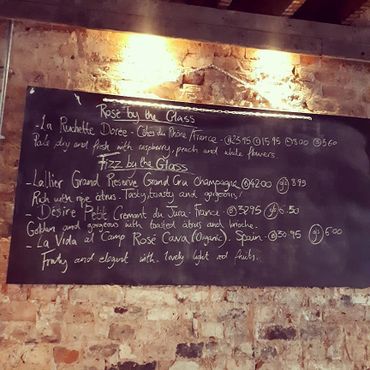 Rosé by the Glass
- La Ruchette Dorée - Côtes du Rhône / France - B 23.95 C 15.95 5.00 5.60
Pale, dry and fresh with raspberry, peach and white flowers.
Fizz by the Glass
- Lallier Grand Reserve Grand Cru Champagne B 42.00 gls 8.95
Rich with ripe citrus. Tasty, toasty and gorgeous!
- Désiré Petit Crémant du Jura - France - B 32.95 gls 6.50
Golden and gorgeous with toasted citrus and brioche.
- La Vida al Camp Rosé Cava (Organic). Spain - B 30.95 gls 6.00
Fruity and elegant with lovely light red fruits.